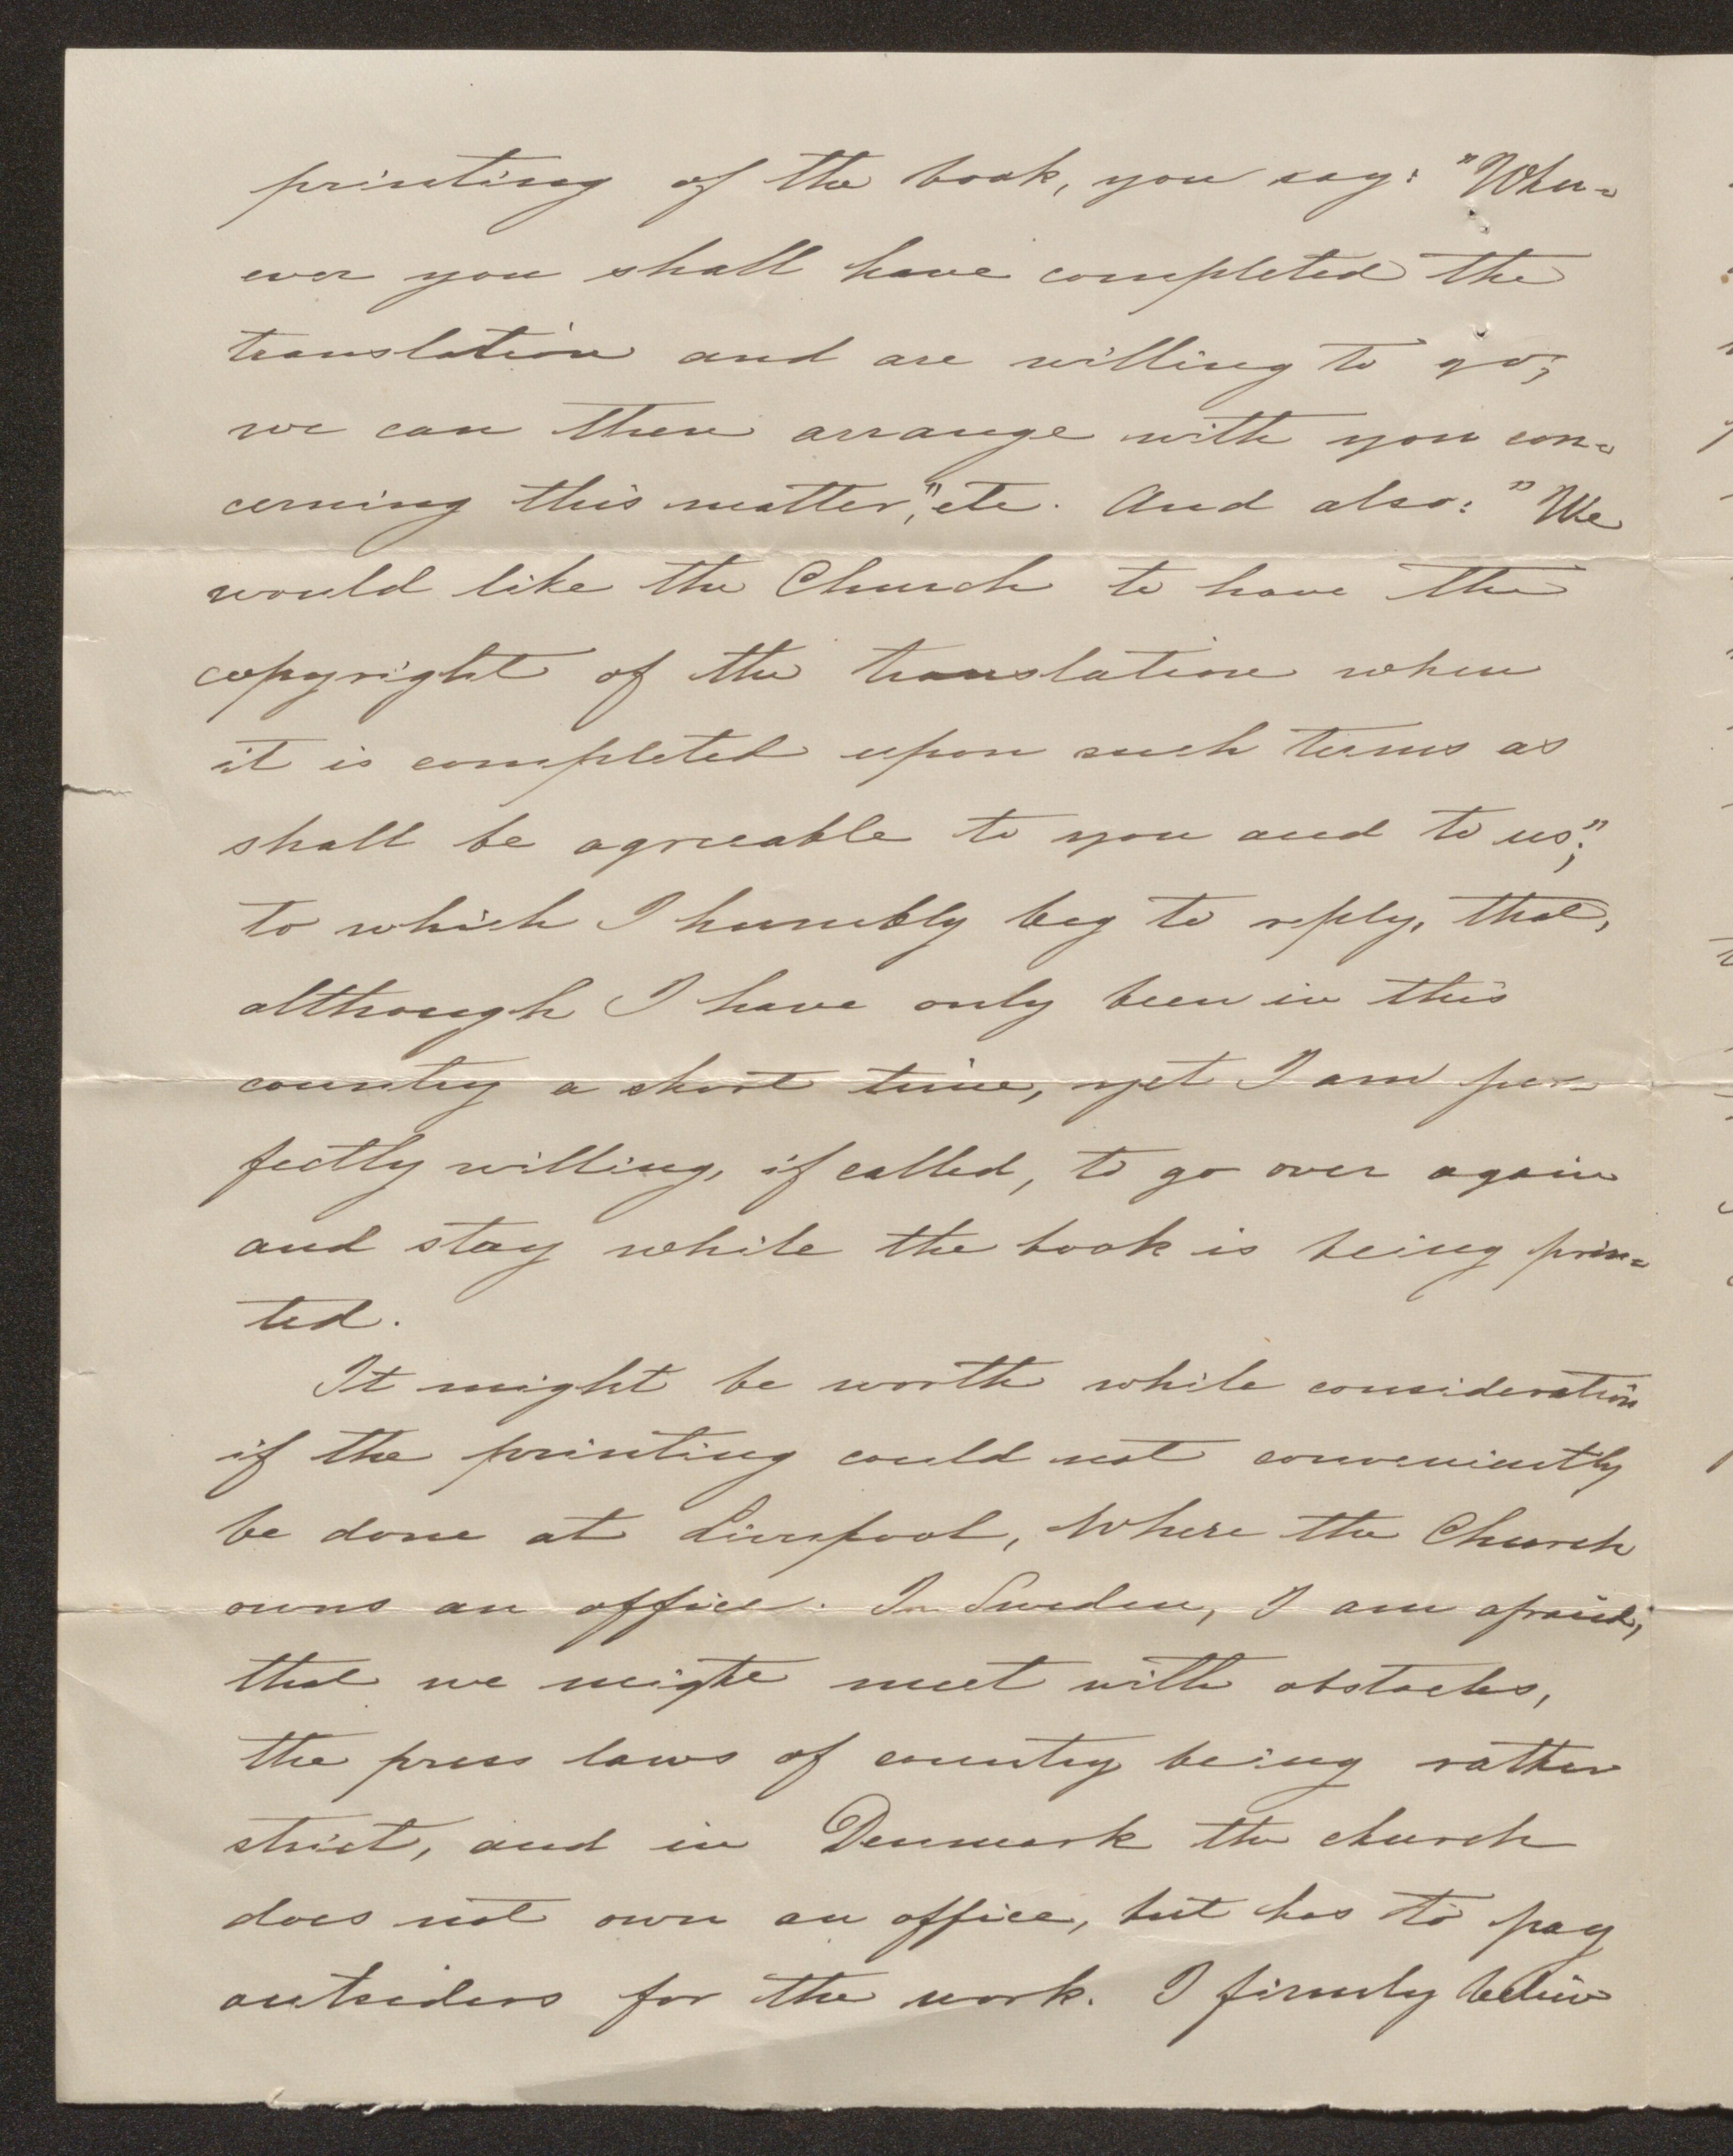 printing of the book, you say: "When=
ever you shall have completed the
translation and are willing to go,
we can then arrange with you con=
cerning this matter," etc. And also: "We
would like the Church to have the
copyright of the translation when
it is completed upon such terms as
shall be agreeable to you and to us";
to which I humbly beg to reply, that,
although I have only been in this
country a short time, yet I am per=
fectly willing, if called, to go over again
and stay while the book is being prin=
ted.
It might be worth while consideration
if the printing could not conveniently
be done at Liverpool, where the Church
owns an office. In Sweden, I am afraid,
that we might meet with obstacles,
the press laws of country being rather
strict, and in Denmark the church
does not own an office, but has to pay
outsiders for the work. I firmly believe